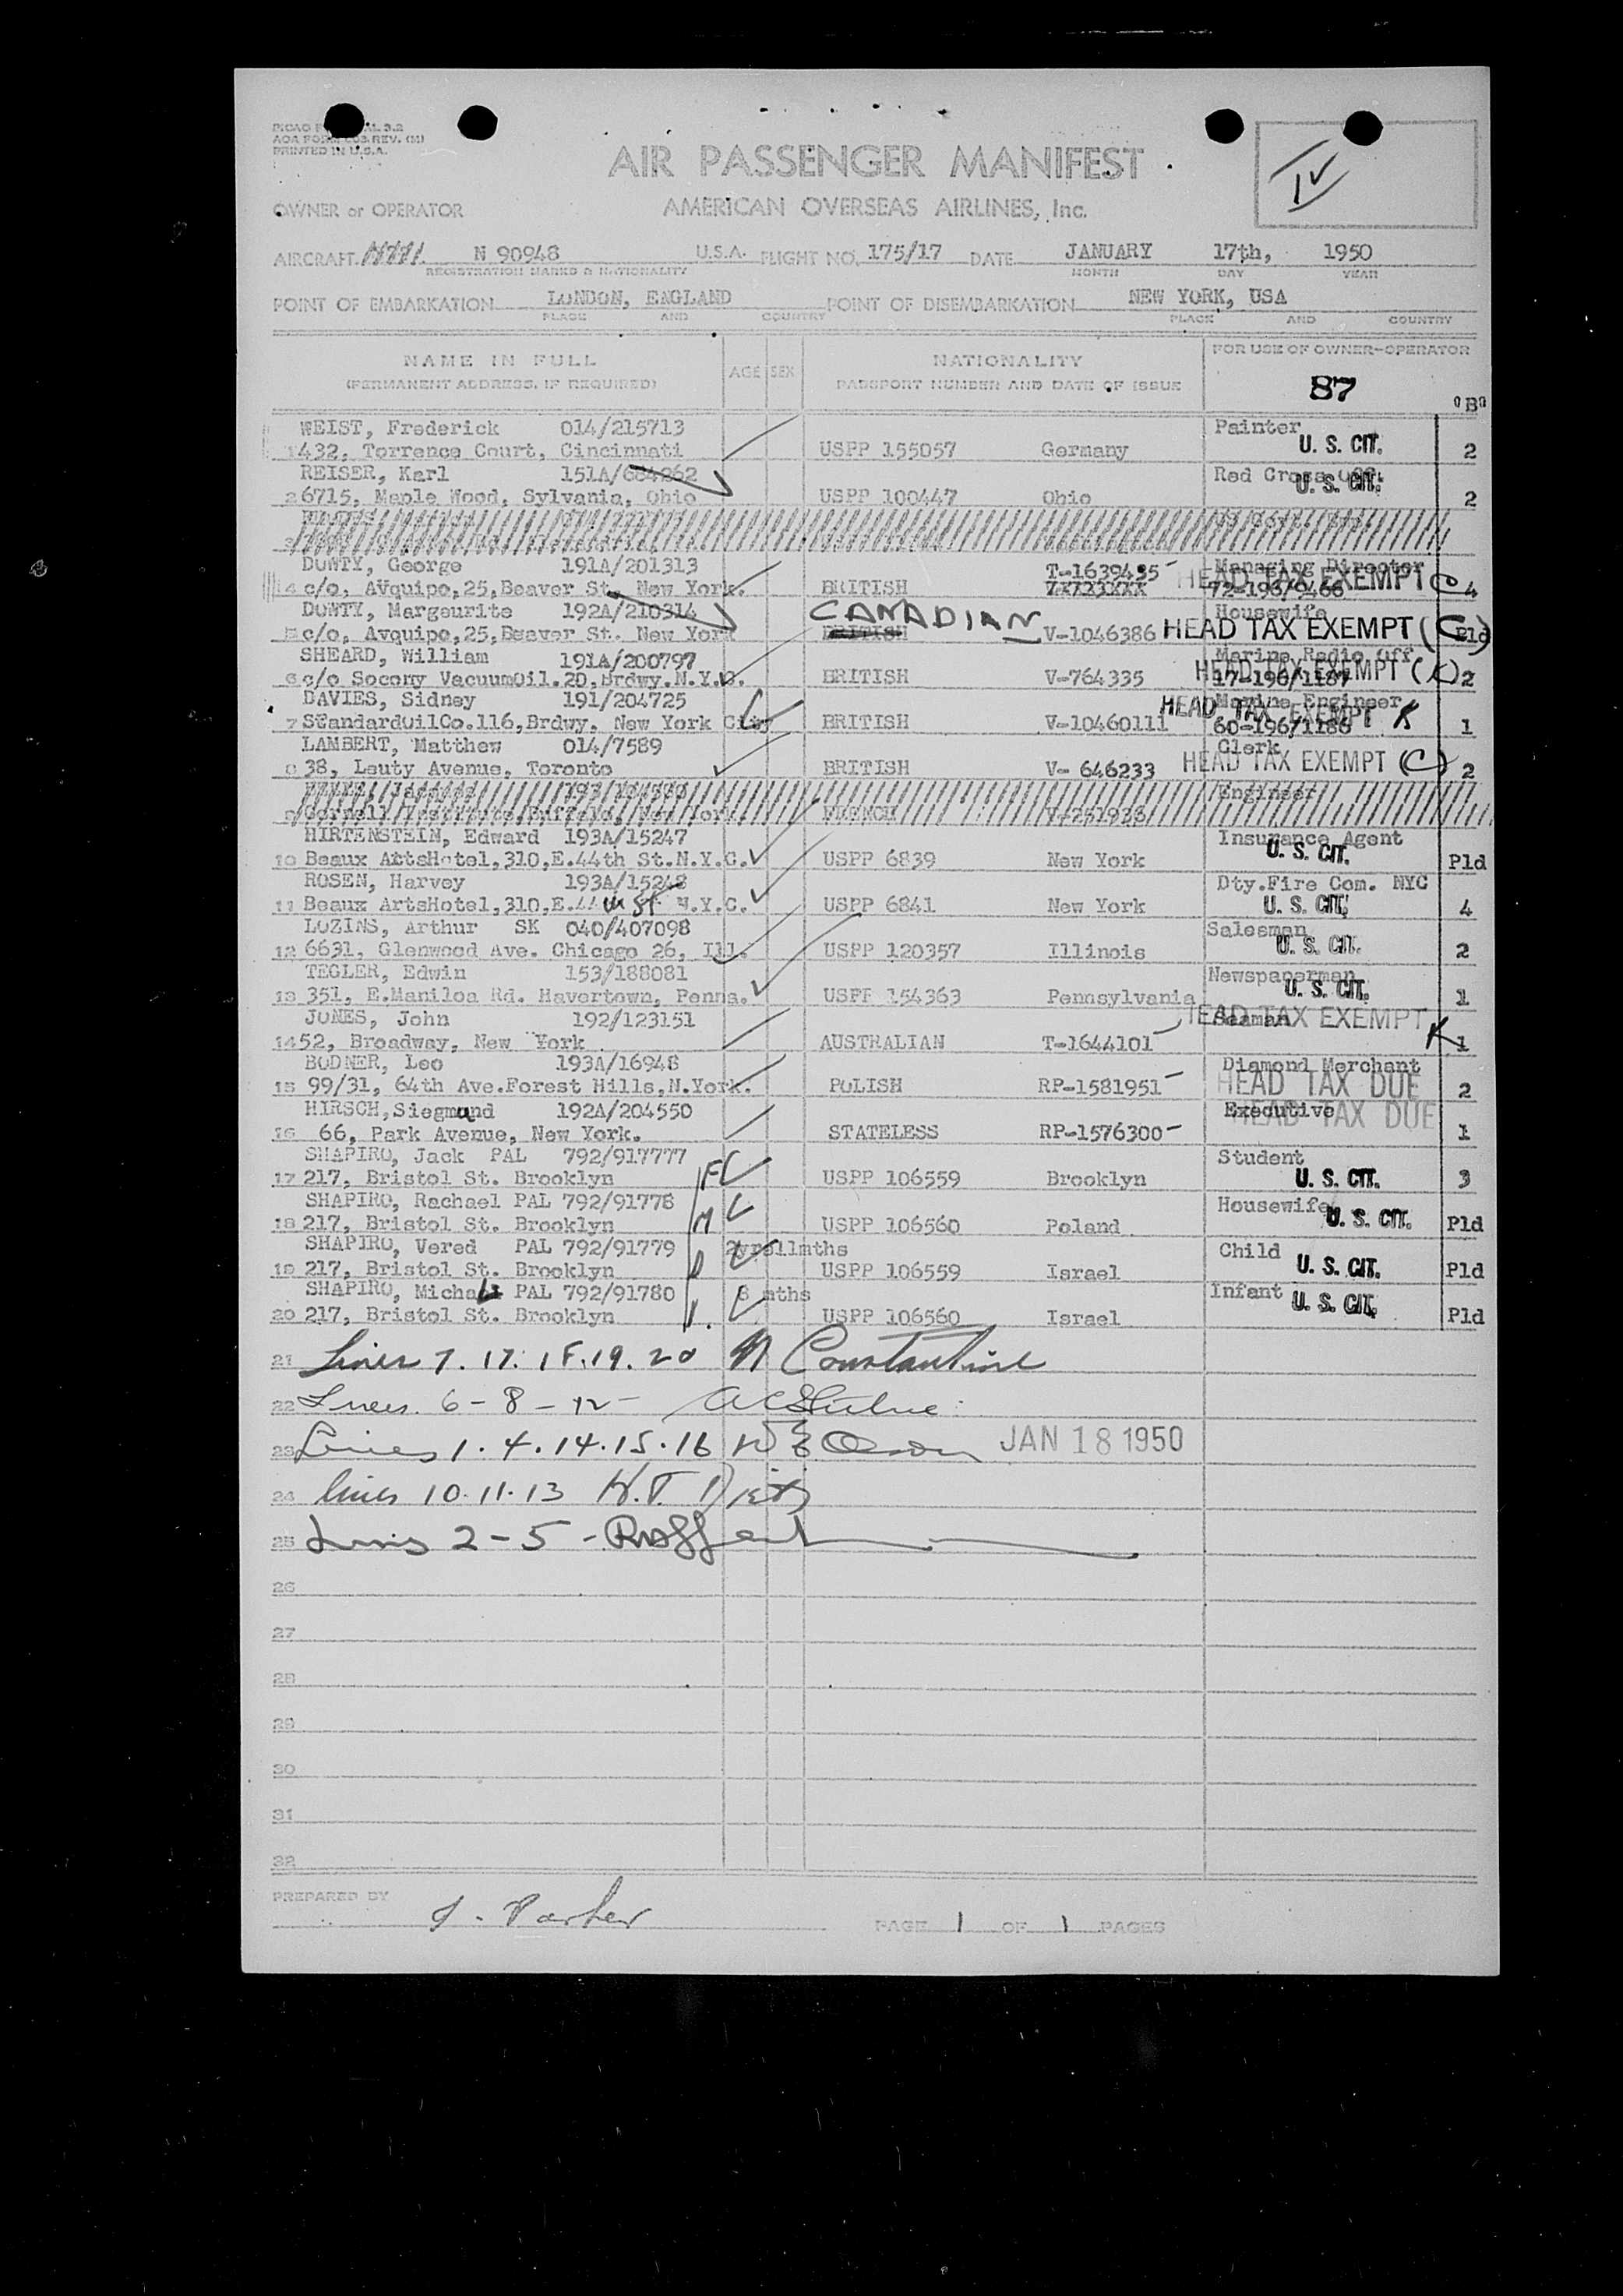 PRINTED IN U.S.A.
AIR PASSENGER MANIFEST
IV
OWNER or OPERATOR AMERICAN OVERSEAS AIRLINES, Inc.
AIRCRAFT N 90948 U.S.A. FLIGHT NO. 175/17 DATE JANUARY 17th, 1950
REGISTRATION MARKS & NATIONALITY MONTH DAY YEAR
POINT OF EMBARKATION LONDON, ENGLAND POINT OF DISEMBARKATION NEW YORK, USA
PLACE AND COUNTRY PLACE AND COUNTRY
NAME IN FULL AGE SEX NATIONALITY FOR USE OF OWNER-OPERATOR
(PERMANENT ADDRESS, IF REQUIRED) PASSPORT NUMBER AND DATE OF ISSUE 87
"B"
WEIST, Frederick 014/215713 Painter
1 432, Torrence Court, Cincinnati USPP 155057 Germany U. S. CIT. 2
REISER, Karl 151A/664262 Red Cross Off.
2 6715, Maple Wood, Sylvania, Ohio USPP 100447 Ohio U. S. CIT. 2
3
DOWTY, George 191A/201313 T-1639435 Managing Director
4 c/o, Avquipo,25,Beaver St. New York. BRITISH HEAD TAX EXEMPT C 72-196/9466 4
DOWTY, Margeurite 192A/210314 CANADIAN Housewife
5 c/o, Avquipo,25,Beaver St. New York BRITISH V-1046386 HEAD TAX EXEMPT (C) Pld
SHEARD, William 191A/200797 Marine Radio Off
6 c/o Socony VacuumOil.20,Brdwy.N.Y.C. BRITISH V-764335 HEAD TAX EXEMPT (C) 17-196/1187 2
DAVIES, Sidney 191/204725 Marine Engineer
7 StandardOilCo.116,Brdwy, New York City BRITISH V-10460111 HEAD TAX EXEMPT K 60-196/1186 1
LAMBERT, Matthew 014/7589 Clerk
8 38, Leuty Avenue, Toronto BRITISH V- 646233 HEAD TAX EXEMPT (C) 2
Engineer
9 Cornell Institute, Buffalo, New York. FRENCH
HIRTENSTEIN, Edward 193A/15247 Insurance Agent
10 Beaux ArtsHotel,310,E.44th St.N.Y.C. USPP 6839 New York U. S. CIT. Pld
ROSEN, Harvey 193A/15248 Dty.Fire Com. NYC
11 Beaux ArtsHotel,310,E.44th St N.Y.C. USPP 6841 New York U. S. CIT. 4
LOZINS, Arthur SK 040/407098 Salesman
12 6631, Glenwood Ave. Chicago 26, Ill. USPP 120357 Illinois U. S. CIT. 2
TEGLER, Edwin 153/188081 Newspaperman
13 351, E.Maniloa Rd. Havertown, Penna. USPP 154363 Pennsylvania U. S. CIT. 1
JONES, John 192/123151 Seaman HEAD TAX EXEMPT
14 52, Broadway, New York AUSTRALIAN T-1644101 K 1
BODNER, Leo 193A/16948 Diamond Merchant
15 99/31, 64th Ave.Forest Hills,N.York. POLISH RP-1581951 HEAD TAX DUE 2
HIRSCH,Siegmund 192A/204550 Executive HEAD TAX DUE
16 66, Park Avenue, New York. STATELESS RP-1576300 1
SHAPIRO, Jack PAL 792/917777 Student
17 217, Bristol St. Brooklyn F USPP 106559 Brooklyn U. S. CIT. 3
SHAPIRO, Rachael PAL 792/91778 Housewife
18 217, Bristol St. Brooklyn M USPP 106560 Poland U. S. CIT. Pld
SHAPIRO, Vered PAL 792/91779 2yrs11mths Child
19 217, Bristol St. Brooklyn D USPP 106559 Israel U. S. CIT. Pld
SHAPIRO, Michael PAL 792/91780 8 mths Infant
20 217, Bristol St. Brooklyn USPP 106560 Israel U. S. CIT. Pld
21 Lines 7. 17. 18. 19. 20 N Constantine
22 Lines. 6 - 8 - 12 -
23 Lines 1. 4. 14. 15. 16 W E Olson JAN 18 1950
24 lines 10. 11. 13 H.T. Dietz
25 Lines 2 - 5 -
26
27
28
29
30
31
32
PREPARED BY J. Parker PAGE 1 OF 1 PAGES